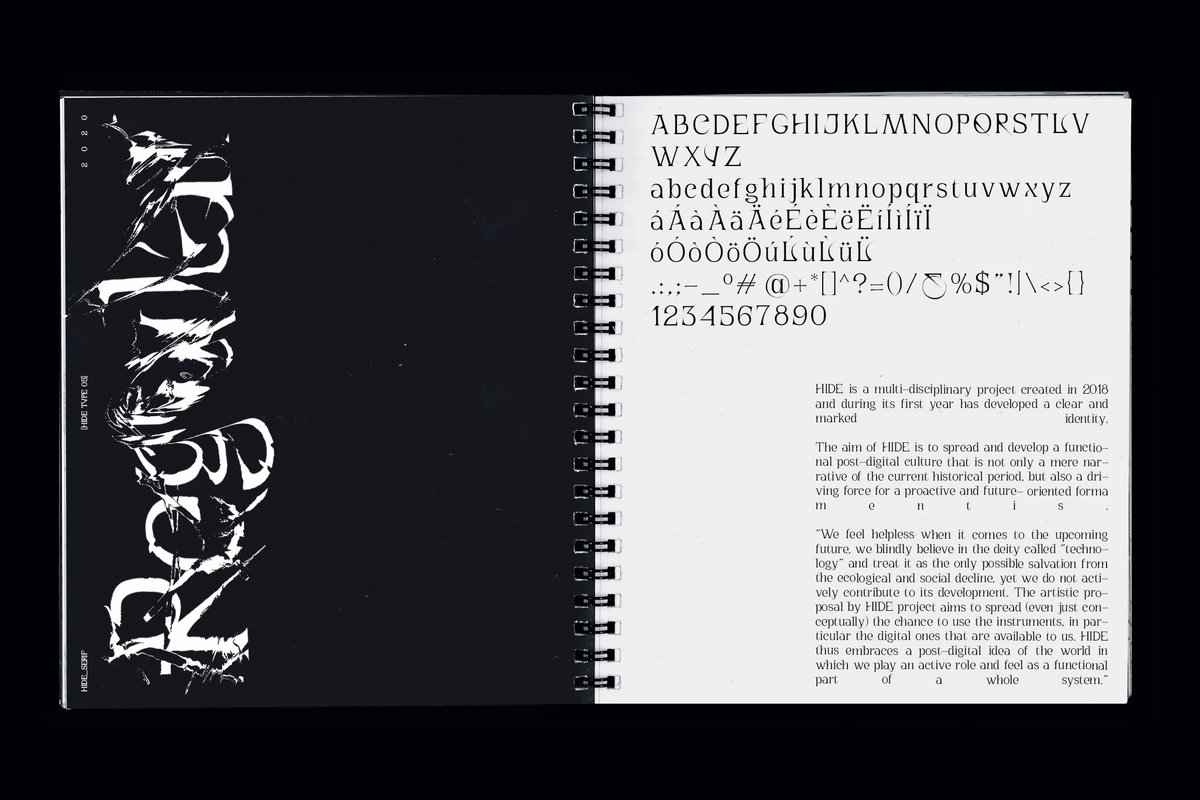 2020
Regular
[HIDE TYPE 05]
HIDE_SERIF
ABCDEFGHIJKLMNOPQRSTUV
WXYZ
abcdefghijklmnopqrstuvwxyz
áÁàÀäÄéÉèÈëËíÍìÌïÏ
óÓòÒöÖúÚùÙüÜ
.:,;-_°#@+*[]^?=()/&%$"!|\<>{}
1234567890
HIDE is a multi-disciplinary project created in 2018
and during its first year has developed a clear and
marked identity.
The aim of HIDE is to spread and develop a functio-
nal post-digital culture that is not only a mere nar-
rative of the current historical period, but also a dri-
ving force for a proactive and future- oriented forma
mentis.
"We feel helpless when it comes to the upcoming
future, we blindly believe in the deity called "techno-
logy" and treat it as the only possible salvation from
the ecological and social decline, yet we do not acti-
vely contribute to its development. The artistic pro-
posal by HIDE project aims to spread (even just con-
ceptually) the chance to use the instruments, in par-
ticular the digital ones that are available to us. HIDE
thus embraces a post-digital idea of the world in
which we play an active role and feel as a functional
part of a whole system."